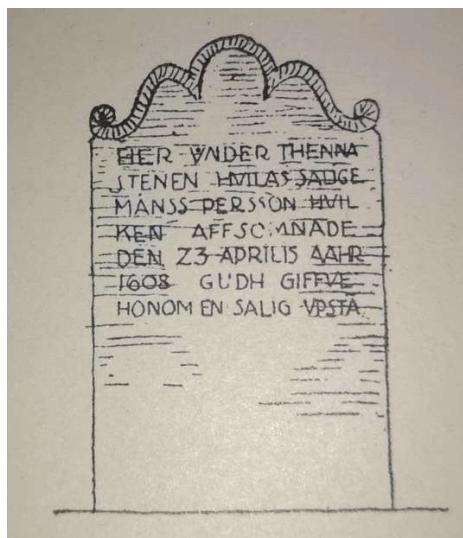 HER VNDER THENNA
STENEN HVILAS SALIGE
MÅNSS PERSSON HVIL
KEN AFFSOMNADE
DEN 23 APRILIS AAHR
1608 GUDH GIFFVE
HONOM EN SALIG VPSTA